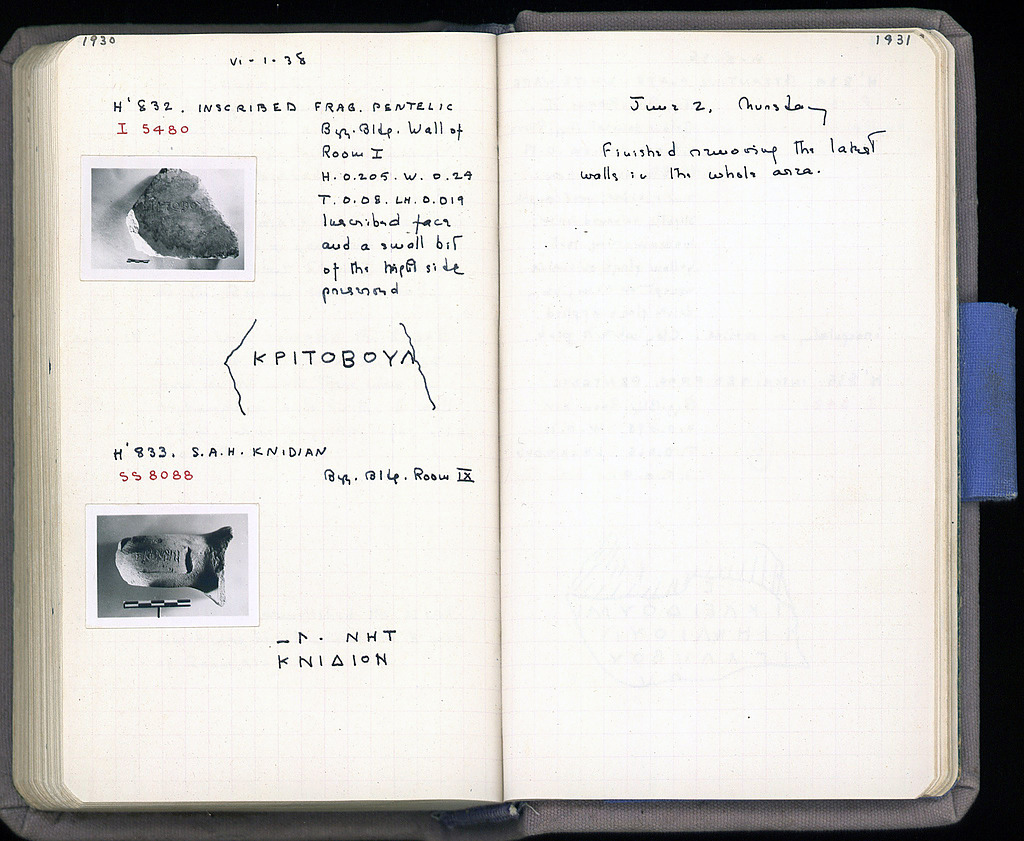 1930
VI - 1 - 38
H' 832. INSCRIBED FRAG. PENTELIC
I 5480
Byz. Bldg. Wall of
Room I
H. 0.205. W. 0.24
T. 0.08. LH. 0.019
Inscribed face
and a small bit
of the right side
preserved
ΚΡΙΤΟΒΟΥΛ
H' 833. S.A.H. KNIDIAN
SS 8088
Byz. Bldg. Room IX
ΝΗΤ
ΚΝΙΔΙΟΝ
1931
June 2, Thursday
Finished removing the latest
walls in the whole area.